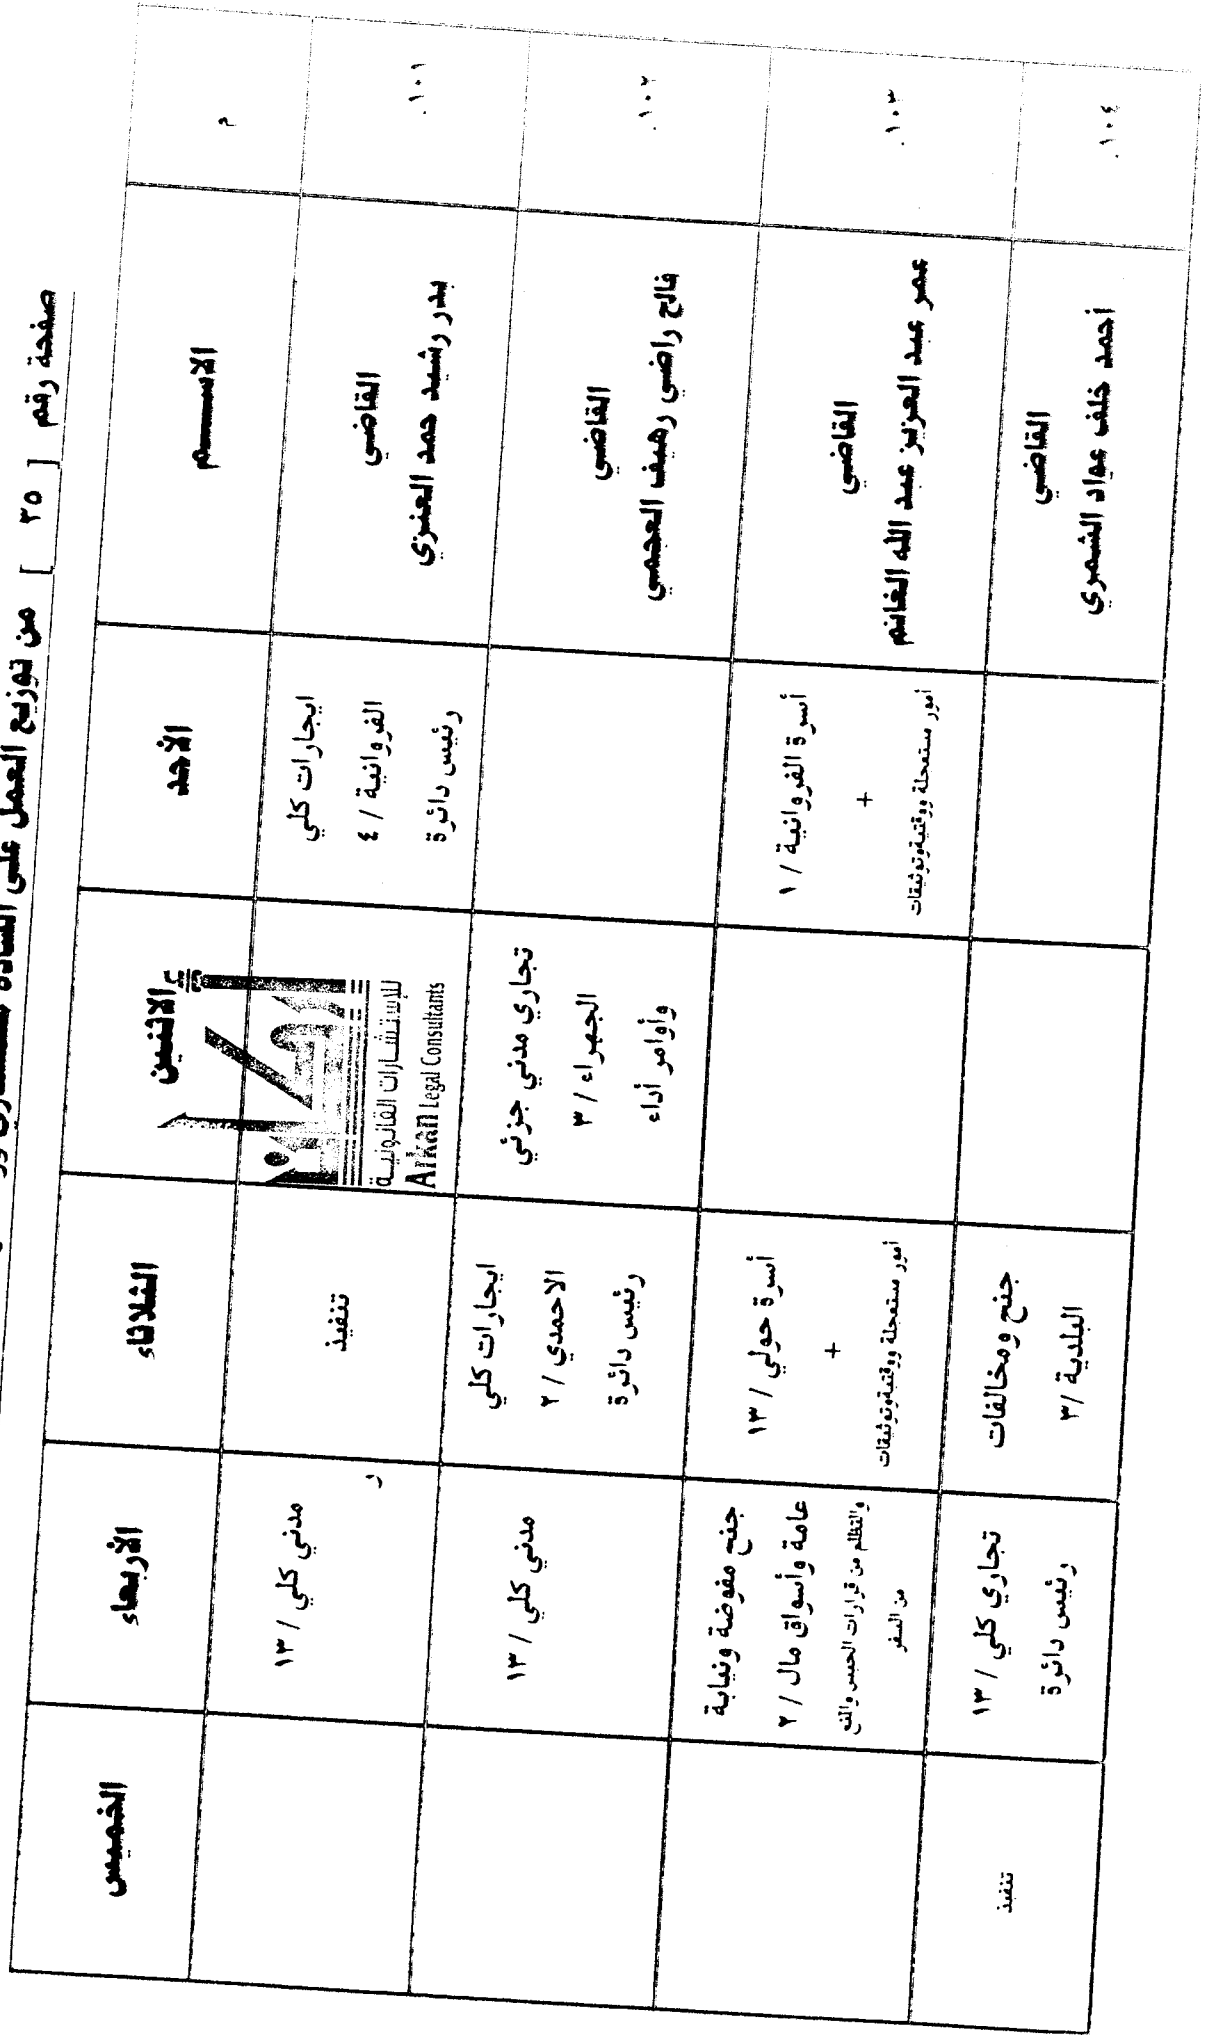 صفحة رقم [ ٣٥ ] من توزيع العمل على السادة
م
الاســـــم
الأحد
الاثنين
الثلاثاء
الأربعاء
الخميس
١٠١.
القاضي
بدر رشيد حمد العنزي
ايجارات كلي
الفروانية / ٤
رئيس دائرة
للإستشـارات القانونيـة
Arkan Legal Consultants
تنفيذ
مدني كلي / ١٣
ر
١٠٢.
القاضي
فالح راضي رهيف العجمي
تجاري مدني جزئي
الجهراء / ٣
وأوامر أداء
ايجارات كلي
الاحمدي / ٢
رئيس دائرة
مدني كلي / ١٣
١٠٣.
القاضي
عمر عبد العزيز عبد الله الغانم
أسرة الفروانية / ١
+
أمور مستعجلة ووقتية وتوثيقات
أسرة حولي / ١٣
+
أمور مستعجلة ووقتية وتوثيقات
جنح مفوضة ونيابة
عامة وأسواق مال / ٢
والتظلم من قرارات الحبس والمنع
من السفر
١٠٤.
القاضي
أحمد خلف عواد الشمري
جنح ومخالفات
البلدية / ٣
تجاري كلي / ١٣
رئيس دائرة
تنفيذ